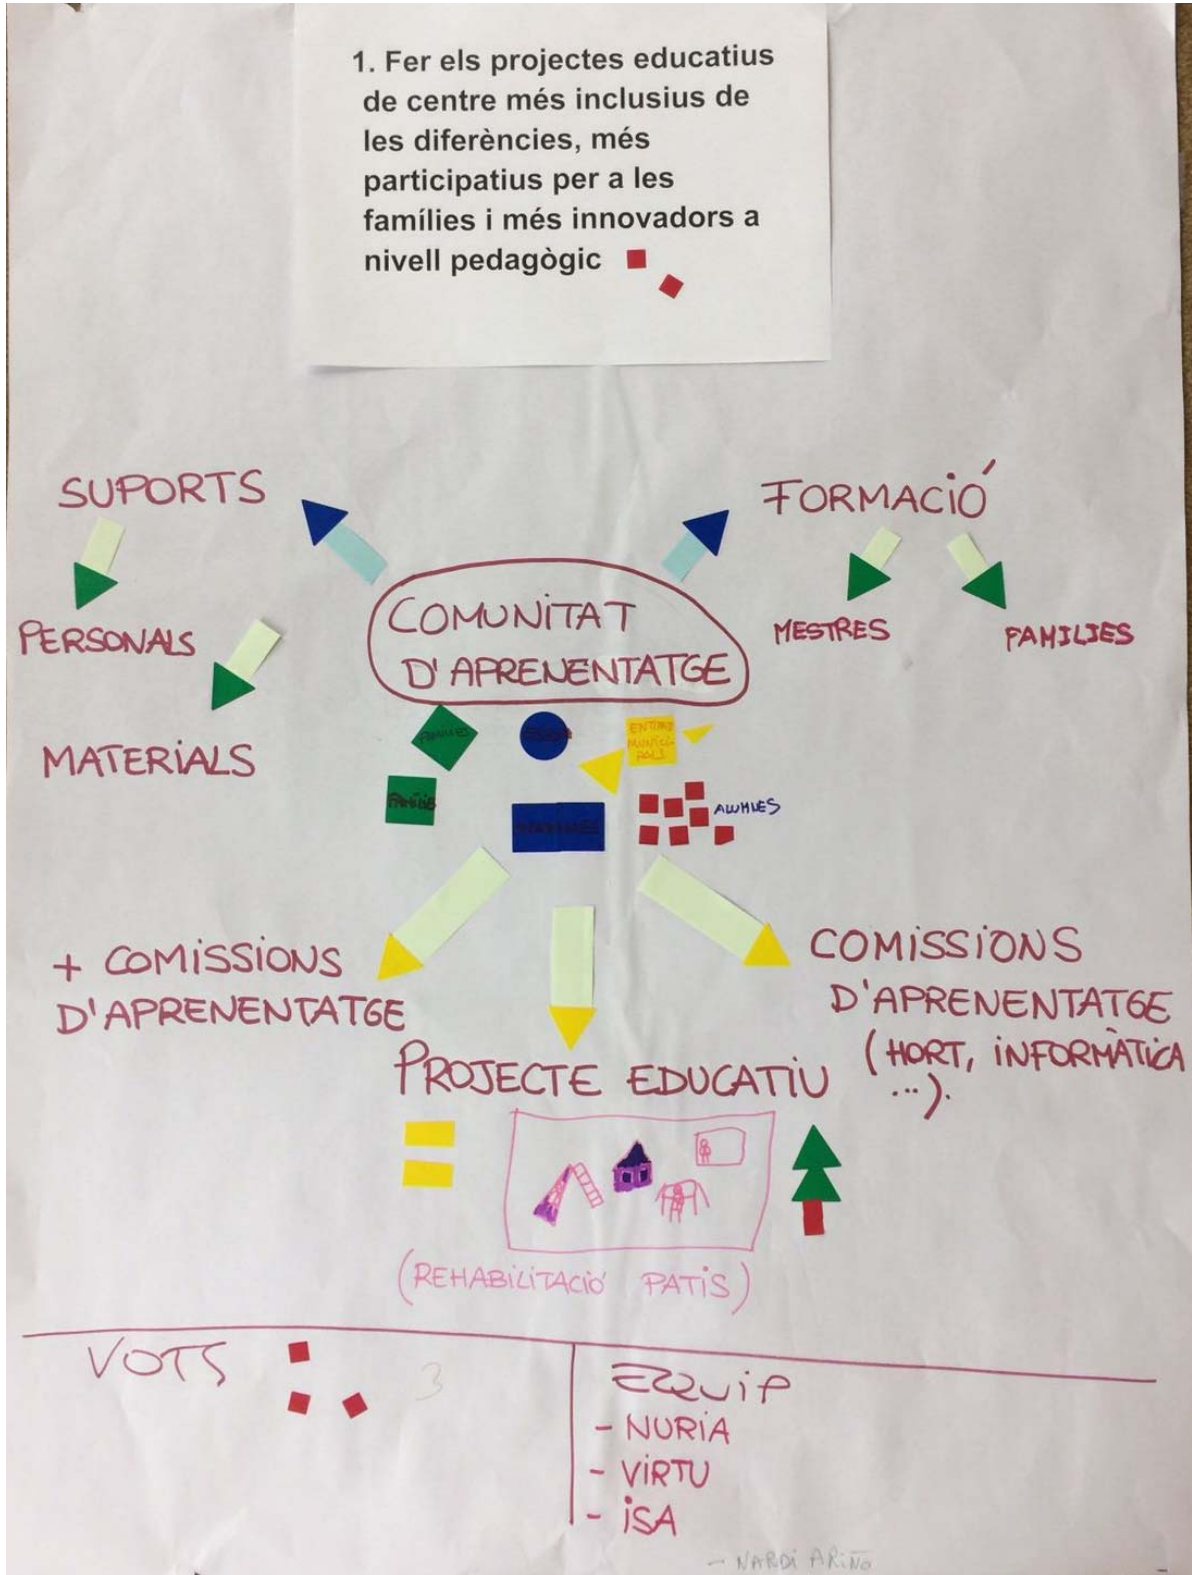 1. Fer els projectes educatius
de centre més inclusius de
les diferències, més
participatius per a les
famílies i més innovadors a
nivell pedagògic
SUPORTS
FORMACIÓ
PERSONALS
MATERIALS
MESTRES
FAMILIES
COMUNITAT
D'APRENENTATGE
FAMILIES
ENTITATS
MUNICI
PALS
FAMÍLIES
ALUMNES
+ COMISSIONS
D'APRENENTATGE
COMISSIONS
D'APRENENTATGE
(HORT, INFORMÀTICA
...).
PROJECTE EDUCATIU
(REHABILITACIÓ PATIS)
VOTS
3
EQUIP
- NURIA
- VIRTU
- ISA
- NARDI ARIÑO